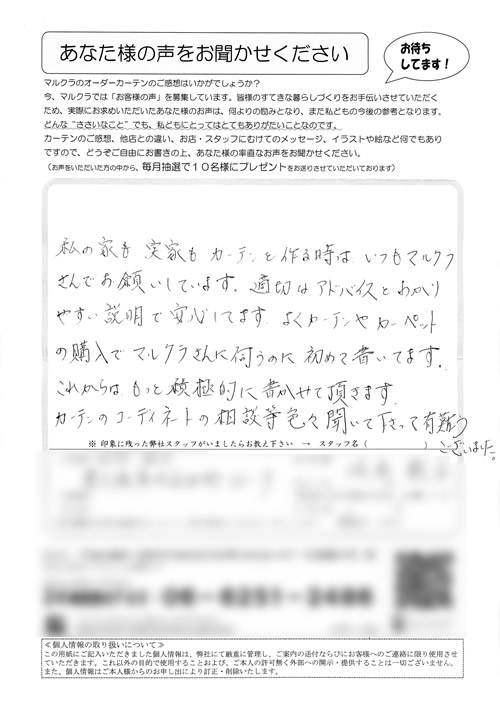 あなた様の声をお聞かせください
お待ち
してます！
マルクラのオーダーカーテンのご感想はいかがでしょうか？
今、マルクラでは「お客様の声」を募集しています。皆様のすてきな暮らしづくりをお手伝いさせていただく
ため、実際にお求めいただいたあなた様のお声は、何よりの励みとなり、また私どもの今後の参考となります。
どんな“ささいなこと”でも、私どもにとってはとてもありがたいことなのです。
カーテンのご感想、他店との違い、お店・スタッフにむけてのメッセージ、イラストや絵など何でもあり
ですので、どうぞご自由にお書きの上、あなた様の率直なお声をお聞かせください。
（お声をいただいた方の中から、毎月抽選で１０名様にプレゼントをお送りさせていただいております）
私の家も 実家も カーテンを作る時は いつもマルクラ
さんでお願いしています。適切なアドバイスとわかり
やすい説明で安心してます。よくカーテンやカーペット
の購入でマルクラさんに伺うのに 初めて書いてます。
これからは、もっと積極的に書かせて頂きます。
カーテンのコーディネートの相談等色々聞いて下さって有難う
ございました。
※ 印象に残った弊社スタッフがいましたらお教え下さい → スタッフ名（ ）
06-6251-2486
≪個人情報の取り扱いについて≫
この用紙にご記入いただきました個人情報は、弊社にて厳重に管理し、ご案内の送付ならびにお客様へのご連絡に限り使用させ
ていただきます。これ以外の目的で使用することおよび、ご本人の許可無く外部への開示・提供することは一切ございません。
また、個人情報はご本人様からのお申し出により訂正・削除いたします。